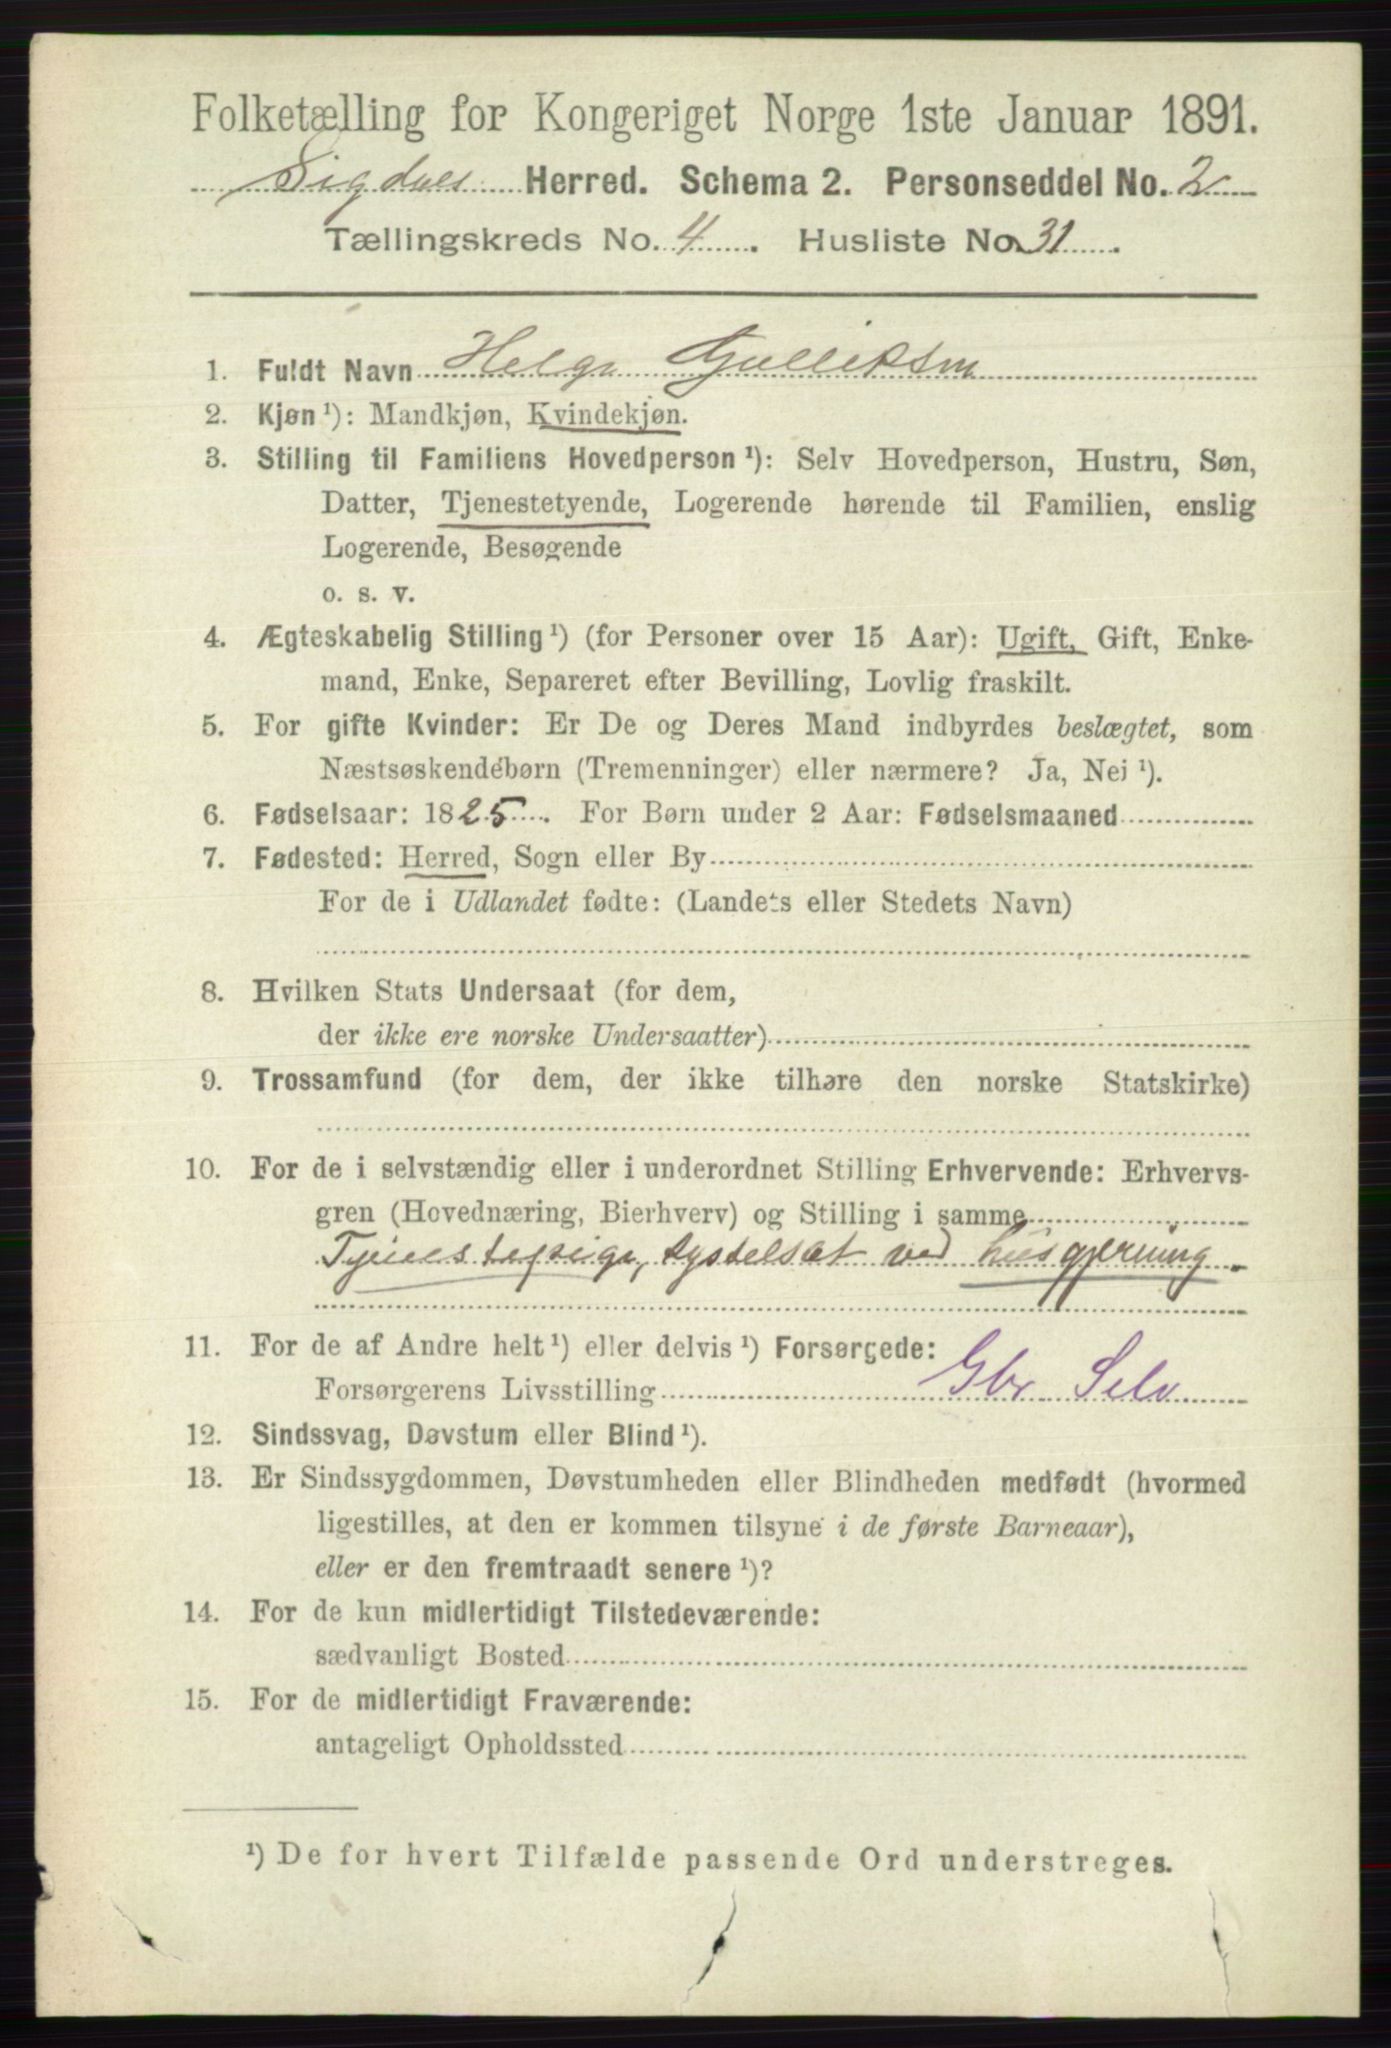 Folketælling for Kongeriget Norge 1ste Januar 1891.
Sigdals Herred. Schema 2. Personseddel No. 2
Tællingskreds No. 4. Husliste No. 31.
1. Fuldt Navn Helge Gulliksen
2. Kjøn ¹): Mandkjøn, Kvindekjøn.
3. Stilling til Familiens Hovedperson ¹): Selv Hovedperson, Hustru, Søn,
Datter, Tjenestetyende, Logerende hørende til Familien, enslig
Logerende, Besøgende
o. s. v.
4. Ægteskabelig Stilling ¹) (for Personer over 15 Aar): Ugift, Gift, Enke-
mand, Enke, Separeret efter Bevilling, Lovlig fraskilt.
5. For gifte Kvinder: Er De og Deres Mand indbyrdes beslægtet, som
Næstsøskendebørn (Tremenninger) eller nærmere? Ja, Nei ¹).
6. Fødselsaar: 1825. For Børn under 2 Aar: Fødselsmaaned
7. Fødested: Herred, Sogn eller By
For de i Udlandet fødte: (Landets eller Stedets Navn)
8. Hvilken Stats Undersaat (for dem,
der ikke ere norske Undersaatter)
9. Trossamfund (for dem, der ikke tilhøre den norske Statskirke)
10. For de i selvstændig eller i underordnet Stilling Erhvervende: Erhvervs-
gren (Hovednæring, Bierhverv) og Stilling i samme
Tjenestepige, sysselsat ved husgjerning.
11. For de af Andre helt ¹) eller delvis ¹) Forsørgede:
Forsørgerens Livsstilling Gbr Selv
12. Sindssvag, Døvstum eller Blind ¹).
13. Er Sindssygdommen, Døvstumheden eller Blindheden medfødt (hvormed
ligestilles, at den er kommen tilsyne i de første Barneaar),
eller er den fremtraadt senere ¹)?
14. For de kun midlertidigt Tilstedeværende:
sædvanligt Bosted
15. For de midlertidigt Fraværende:
antageligt Opholdssted
¹) De for hvert Tilfælde passende Ord understreges.